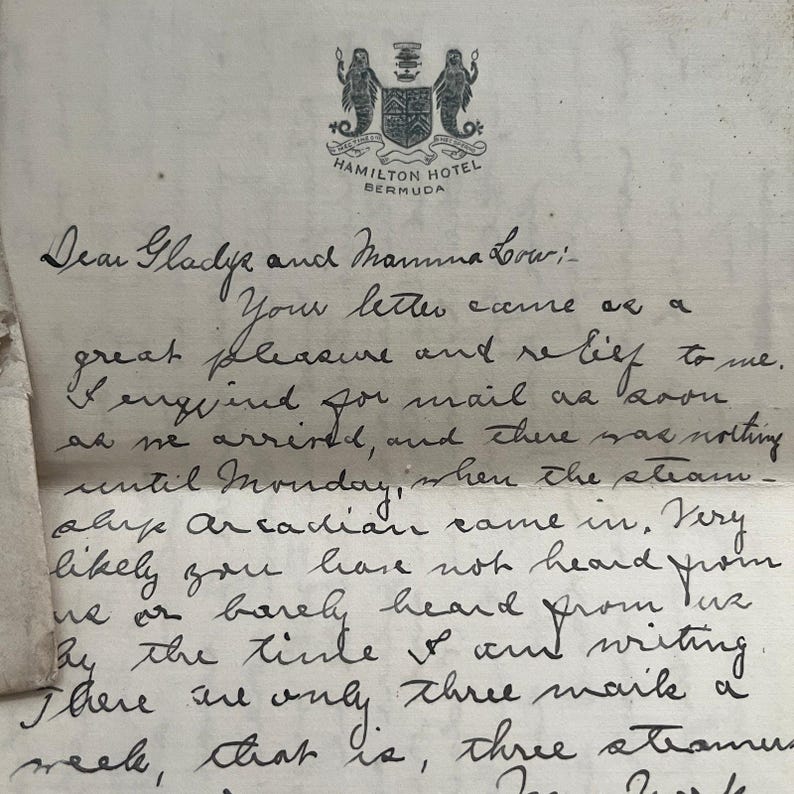 HAMILTON HOTEL
BERMUDA
Dear Gladys and Mamma Low:-
Your letter came as a
great pleasure and relief to me.
I enquired for mail as soon
as we arrived, and there was nothing
until Monday, when the steam-
ship Arcadian came in. Very
likely you have not heard from
us or barely heard from us
by the time I am writing.
There are only three mails a
week, that is, three steamers
New York